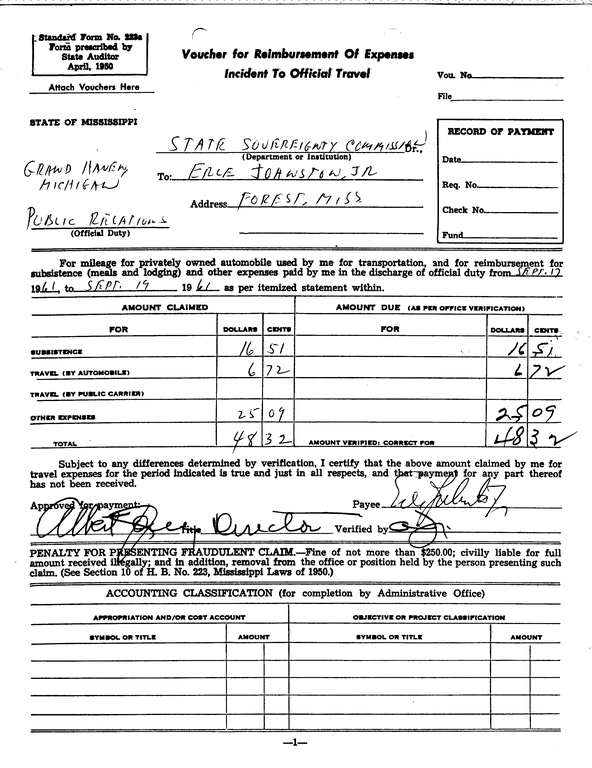 Standard Form No. 223a
Form prescribed by
State Auditor
April, 1950
Attach Vouchers Here
Voucher for Reimbursement Of Expenses
Incident To Official Travel
Vou. No.
File
STATE OF MISSISSIPPI
STATE SOVEREIGNTY COMMISSION Dr.,
(Department or Institution)
GRAND HAVEN,
MICHIGAN
To: ERLE JOHNSTON, JR
Address FOREST, MISS
PUBLIC RELATIONS
(Official Duty)
RECORD OF PAYMENT
Date
Req. No.
Check No.
Fund
For mileage for privately owned automobile used by me for transportation, and for reimbursement for
subsistence (meals and lodging) and other expenses paid by me in the discharge of official duty from SEPT. 17
1961, to SEPT. 19 1961 as per itemized statement within.
AMOUNT CLAIMED AMOUNT DUE (AS PER OFFICE VERIFICATION)
FOR DOLLARS CENTS FOR DOLLARS CENTS
SUBSISTENCE 16 51 16 51
TRAVEL (BY AUTOMOBILE) 6 72 6 72
TRAVEL (BY PUBLIC CARRIER)
OTHER EXPENSES 25 09 25 09
TOTAL 48 32 AMOUNT VERIFIED: CORRECT FOR 48 32
Subject to any differences determined by verification, I certify that the above amount claimed by me for
travel expenses for the period indicated is true and just in all respects, and that payment for any part thereof
has not been received.
Approved for payment: Payee
Albert Title Director Verified by
PENALTY FOR PRESENTING FRAUDULENT CLAIM.—Fine of not more than $250.00; civilly liable for full
amount received illegally; and in addition, removal from the office or position held by the person presenting such
claim. (See Section 10 of H. B. No. 223, Mississippi Laws of 1950.)
ACCOUNTING CLASSIFICATION (for completion by Administrative Office)
APPROPRIATION AND/OR COST ACCOUNT OBJECTIVE OR PROJECT CLASSIFICATION
SYMBOL OR TITLE AMOUNT SYMBOL OR TITLE AMOUNT
—1—